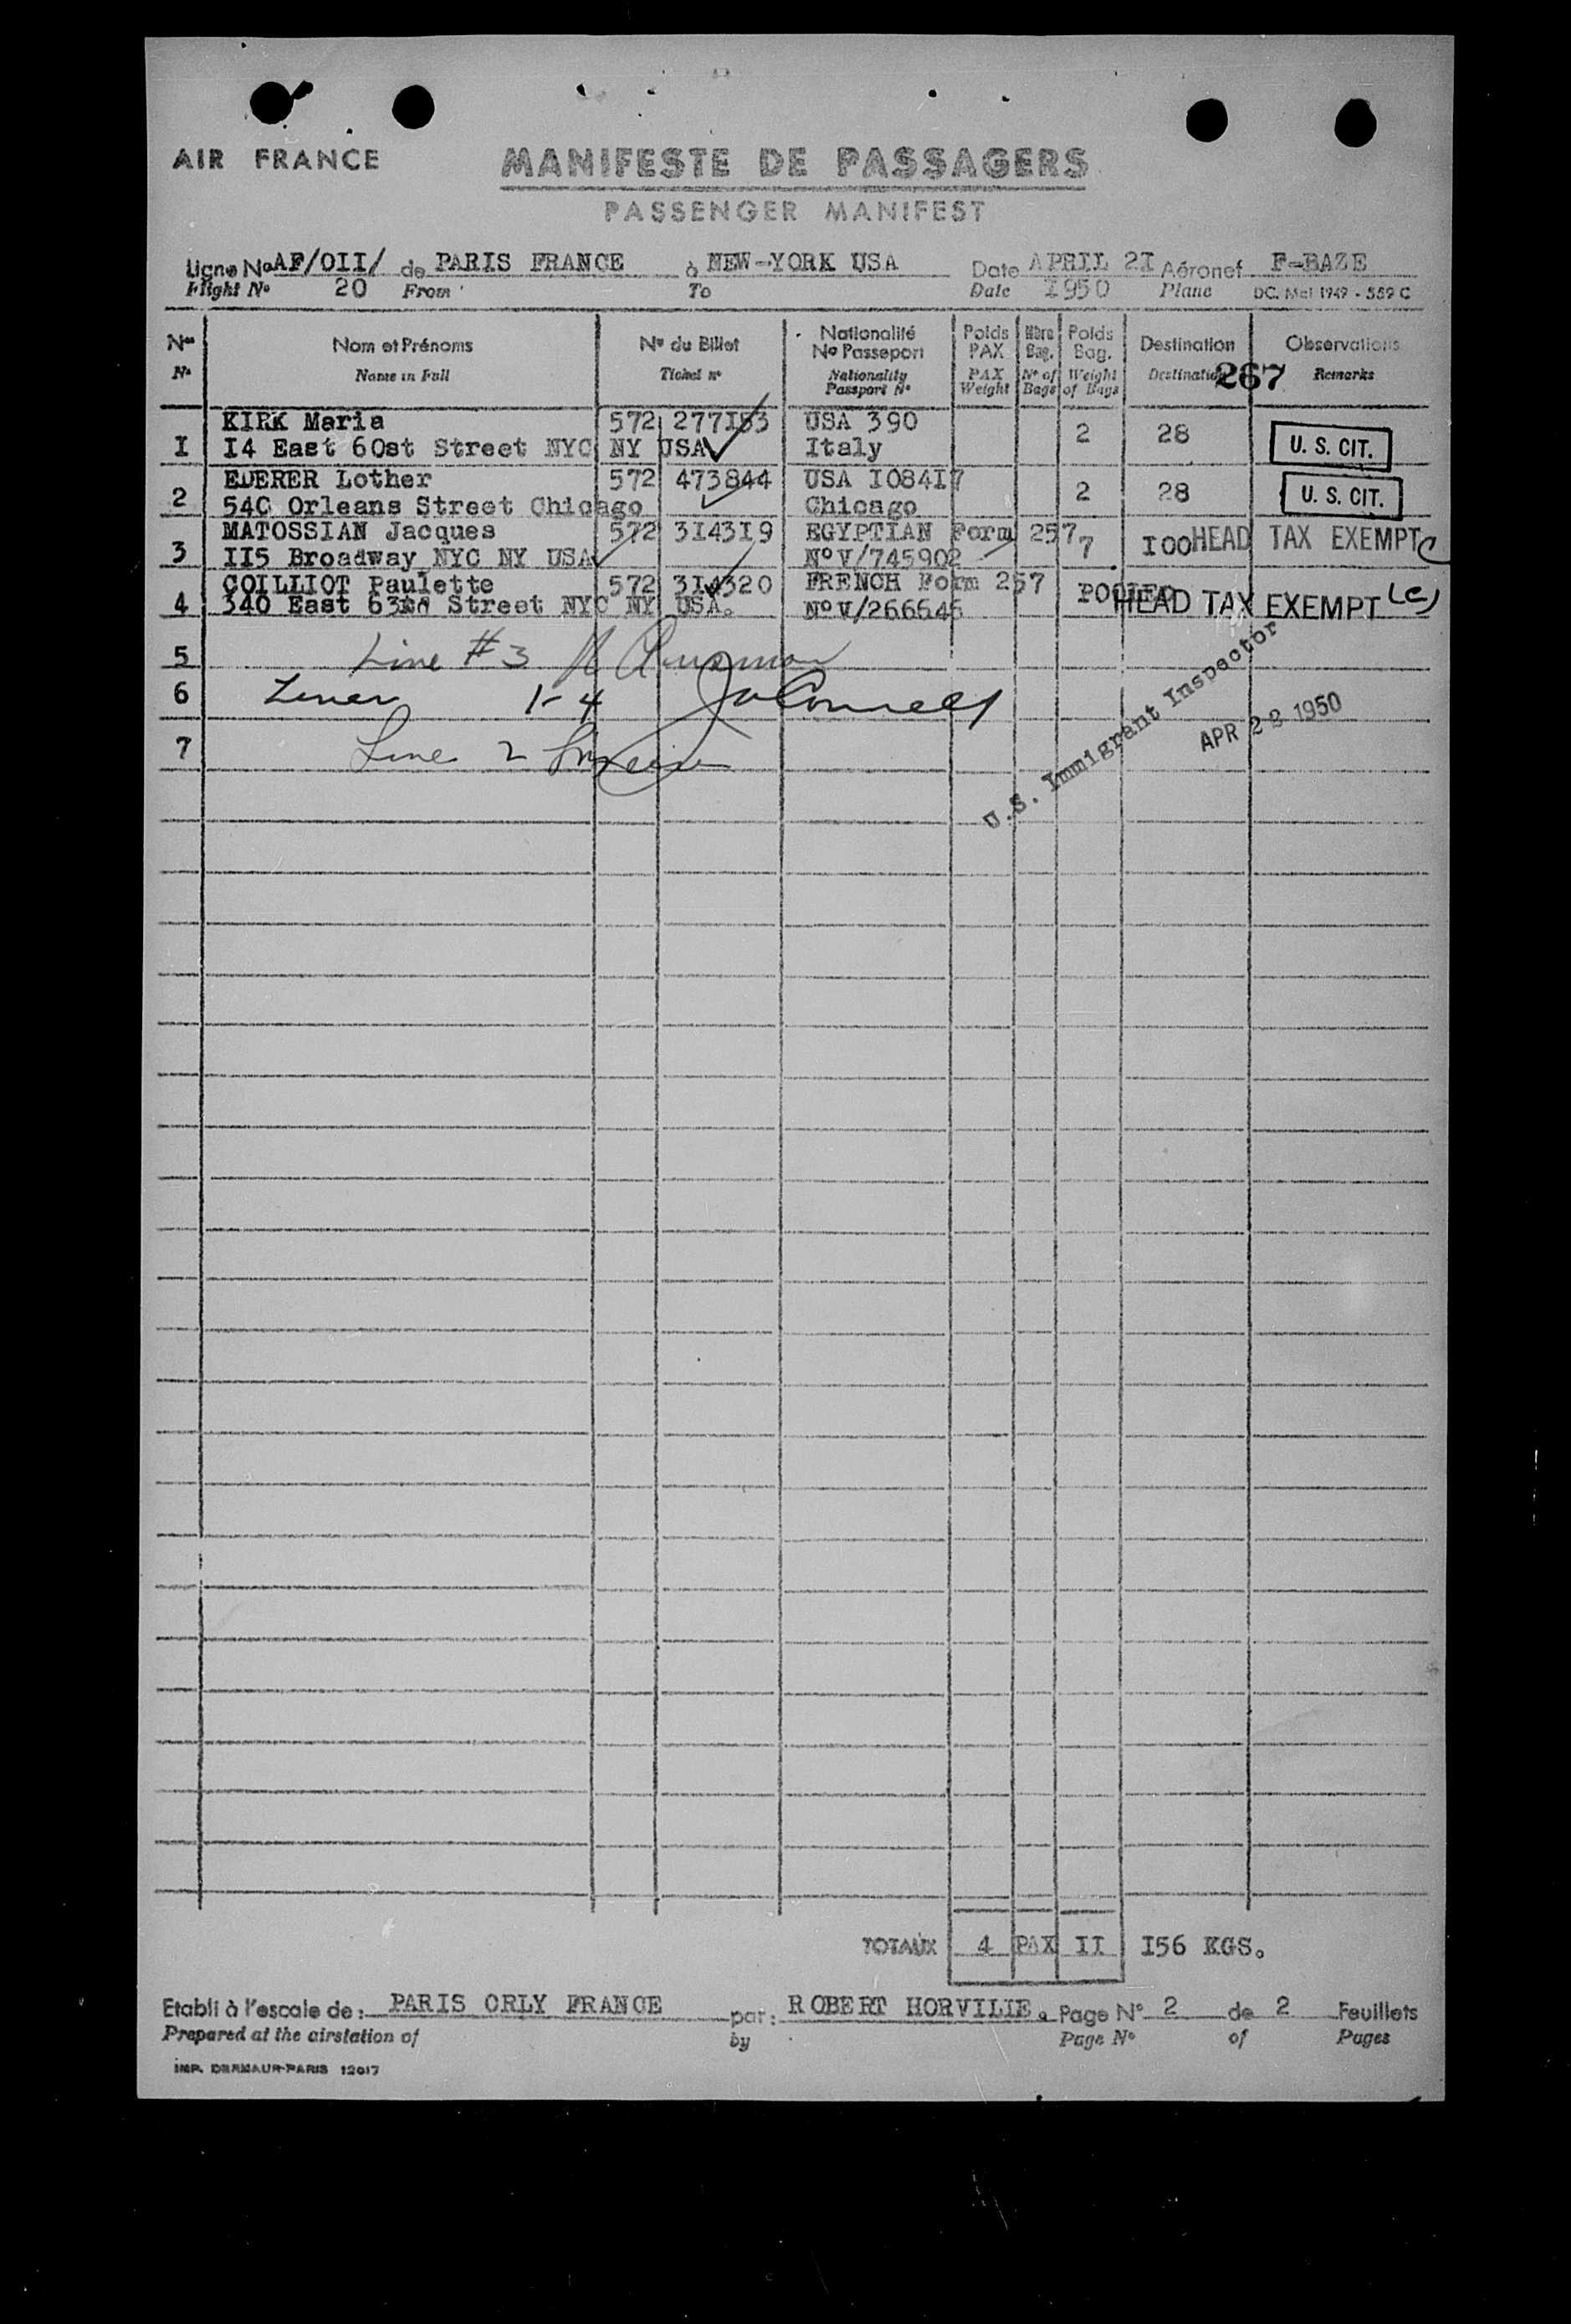 AIR FRANCE
MANIFESTE DE PASSAGERS
PASSENGER MANIFEST
Ligne No AF/OII/ de PARIS FRANCE à NEW-YORK USA Date APRIL 2I Aéronef F-BAZE
Flight No 20 From To Date I950 Plane DC. Mel 1949 - 589 C
Nos Nom et Prénoms No du Billet Nationalité No Passeport Poids PAX Nbre Bag. Poids Bag. Destination Observations
No Name in Full Ticket no Nationality Passport No PAX Weight No of Bags Weight of Bags Destination 267 Remarks
KIRK Maria 572 277I53 USA 390
I I4 East 60st Street NYC NY USA Italy 2 28 U. S. CIT.
EDERER Lother 572 473844 USA I084I7
2 54C Orleans Street Chicago Chicago 2 28 U. S. CIT.
MATOSSIAN Jacques 572 3I43I9 EGYPTIAN Form 257
3 II5 Broadway NYC NY USA No V/745902 7 I00 HEAD TAX EXEMPT
COILLIOT Paulette 572 3I4320 FRENCH Form 257 POOLED
4 340 East 63 Street NYC NY USA. No V/266646 HEAD TAX EXEMPT (C)
5 Line #3
6 Lines 1-4 J O'Connell
7 Line 2
U.S. Immigrant Inspector
APR 1950
TOTAUX 4 PAX II I56 KGS.
Etabli à l'escale de: PARIS ORLY FRANCE par: ROBERT HORVILIE. Page No 2 de 2 Feuillets
Prepared at the airstation of by Page No of Pages
IMP. DERMAUR-PARIS 12017